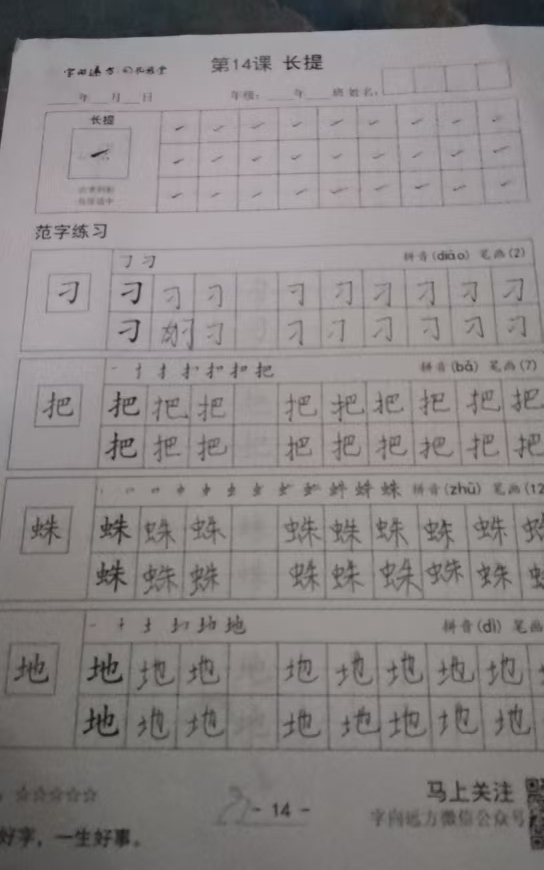 字向远方·习礼雅堂 第14课 长提
年 月 日 年级: 年 班 姓名:
长提
范字练习
刁 拼音(diāo) 笔画(2)
刁 刁 刁 刁 刁 刁 刁 刁 刁 刁
刁 刁 刁 刁 刁 刁 刁 刁
把 拼音(bǎ) 笔画(7)
把 把 把 把 把 把 把 把 把 把
把 把 把 把 把 把 把 把 把
蛛 拼音(zhū) 笔画(12
蛛 蛛 蛛 蛛 蛛 蛛 蛛 蛛
蛛 蛛 蛛 蛛 蛛 蛛 蛛 蛛
地 拼音(dì) 笔画
地 地 地 地 地 地 地 地 地
地 地 地 地 地 地 地 地
☆☆☆☆☆ - 14 - 马上关注
好字，一生好事。 字向远方微信公众号